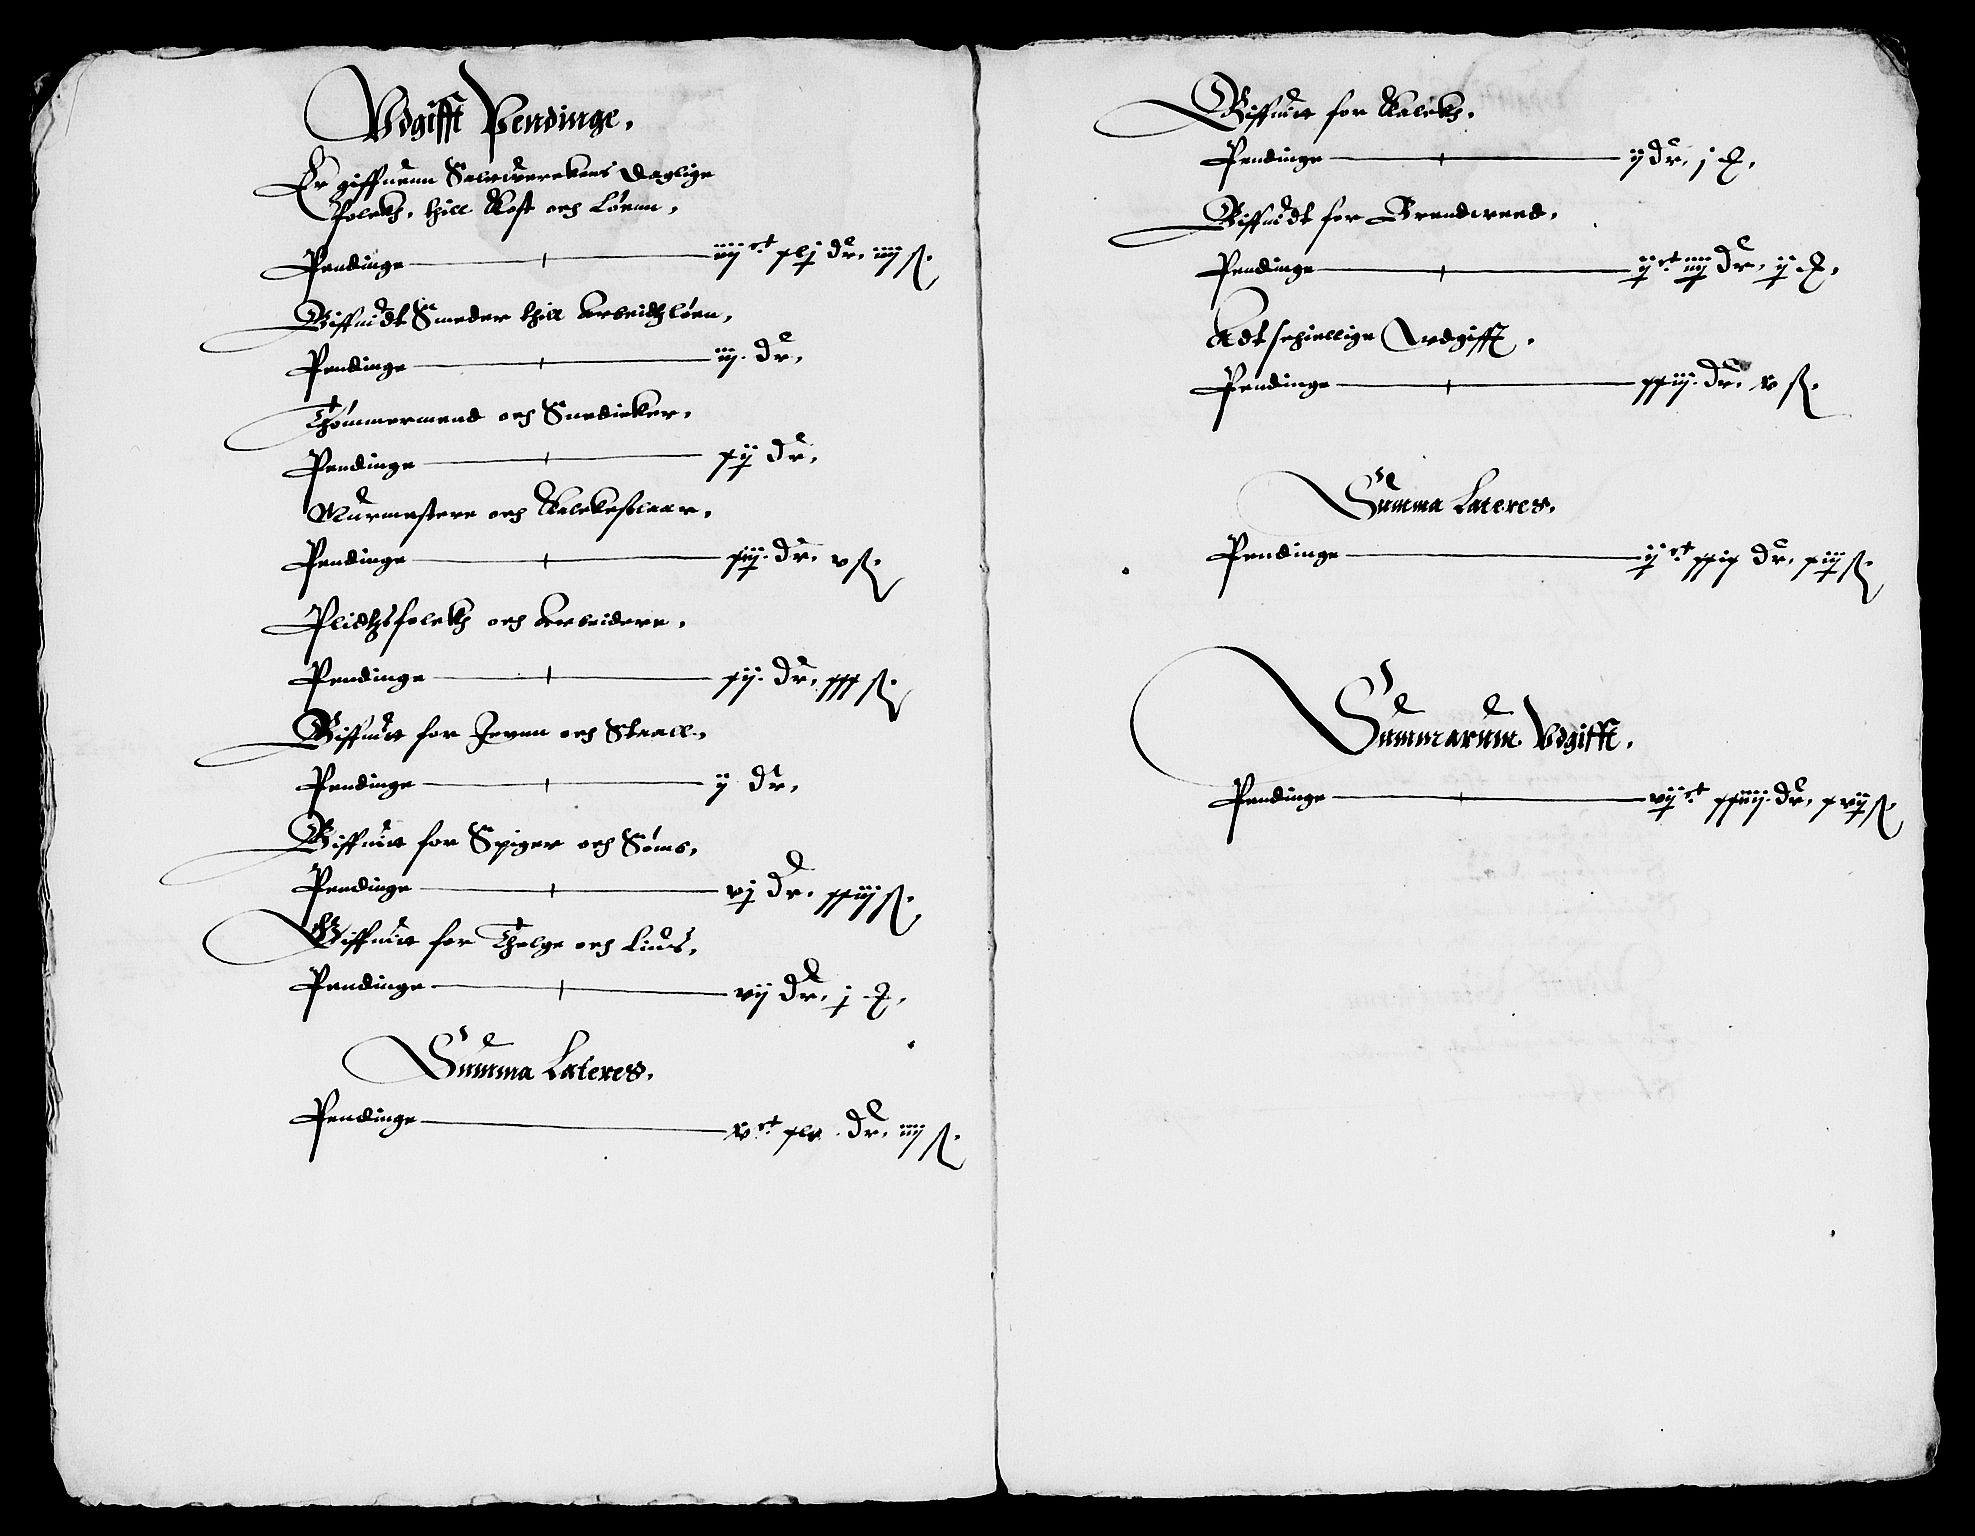 Vdgifft Pendinge.
Er giffuenn Saltwerckens Daglige
folckh, thill Kost och Lønn,
Pendinge iiij ct xlj dr. iiij s.
Giffuidt Smeder thill Arbeidtzløen,
Pendinge iij. dr.
Thømmermend och Snedicker,
Pendinge xij dr.
Murmestere och Kalckeslaar,
Pendinge xiij. dr. v s.
Plictzfolckh och Arbeidere,
Pendinge xij. dr. xxx s.
Giffuit for Jernn och Staall,
Pendinge ij dr.
Giffuit for Spiger och Søms,
Pendinge vj dr. xxiij s.
Giffuit for Thalge och Liuss,
Pendinge vij dr. j
Summa Lateres.
Pendinge v ct xlv dr. iiij s.
Giffuit for Kalckh.
Pendinge ij dr. j
Giffuidt for Brendeved,
Pendinge ij ct iiij dr. ij
Adtschiellige Vdgifft.
Pendinge xxiij. dr. v s.
Summa Lateres.
Pendinge ij ct xxix dr. xiij s.
Summarum Vdgifft.
Pendinge vij ct xxiiij. dr. xvij s.